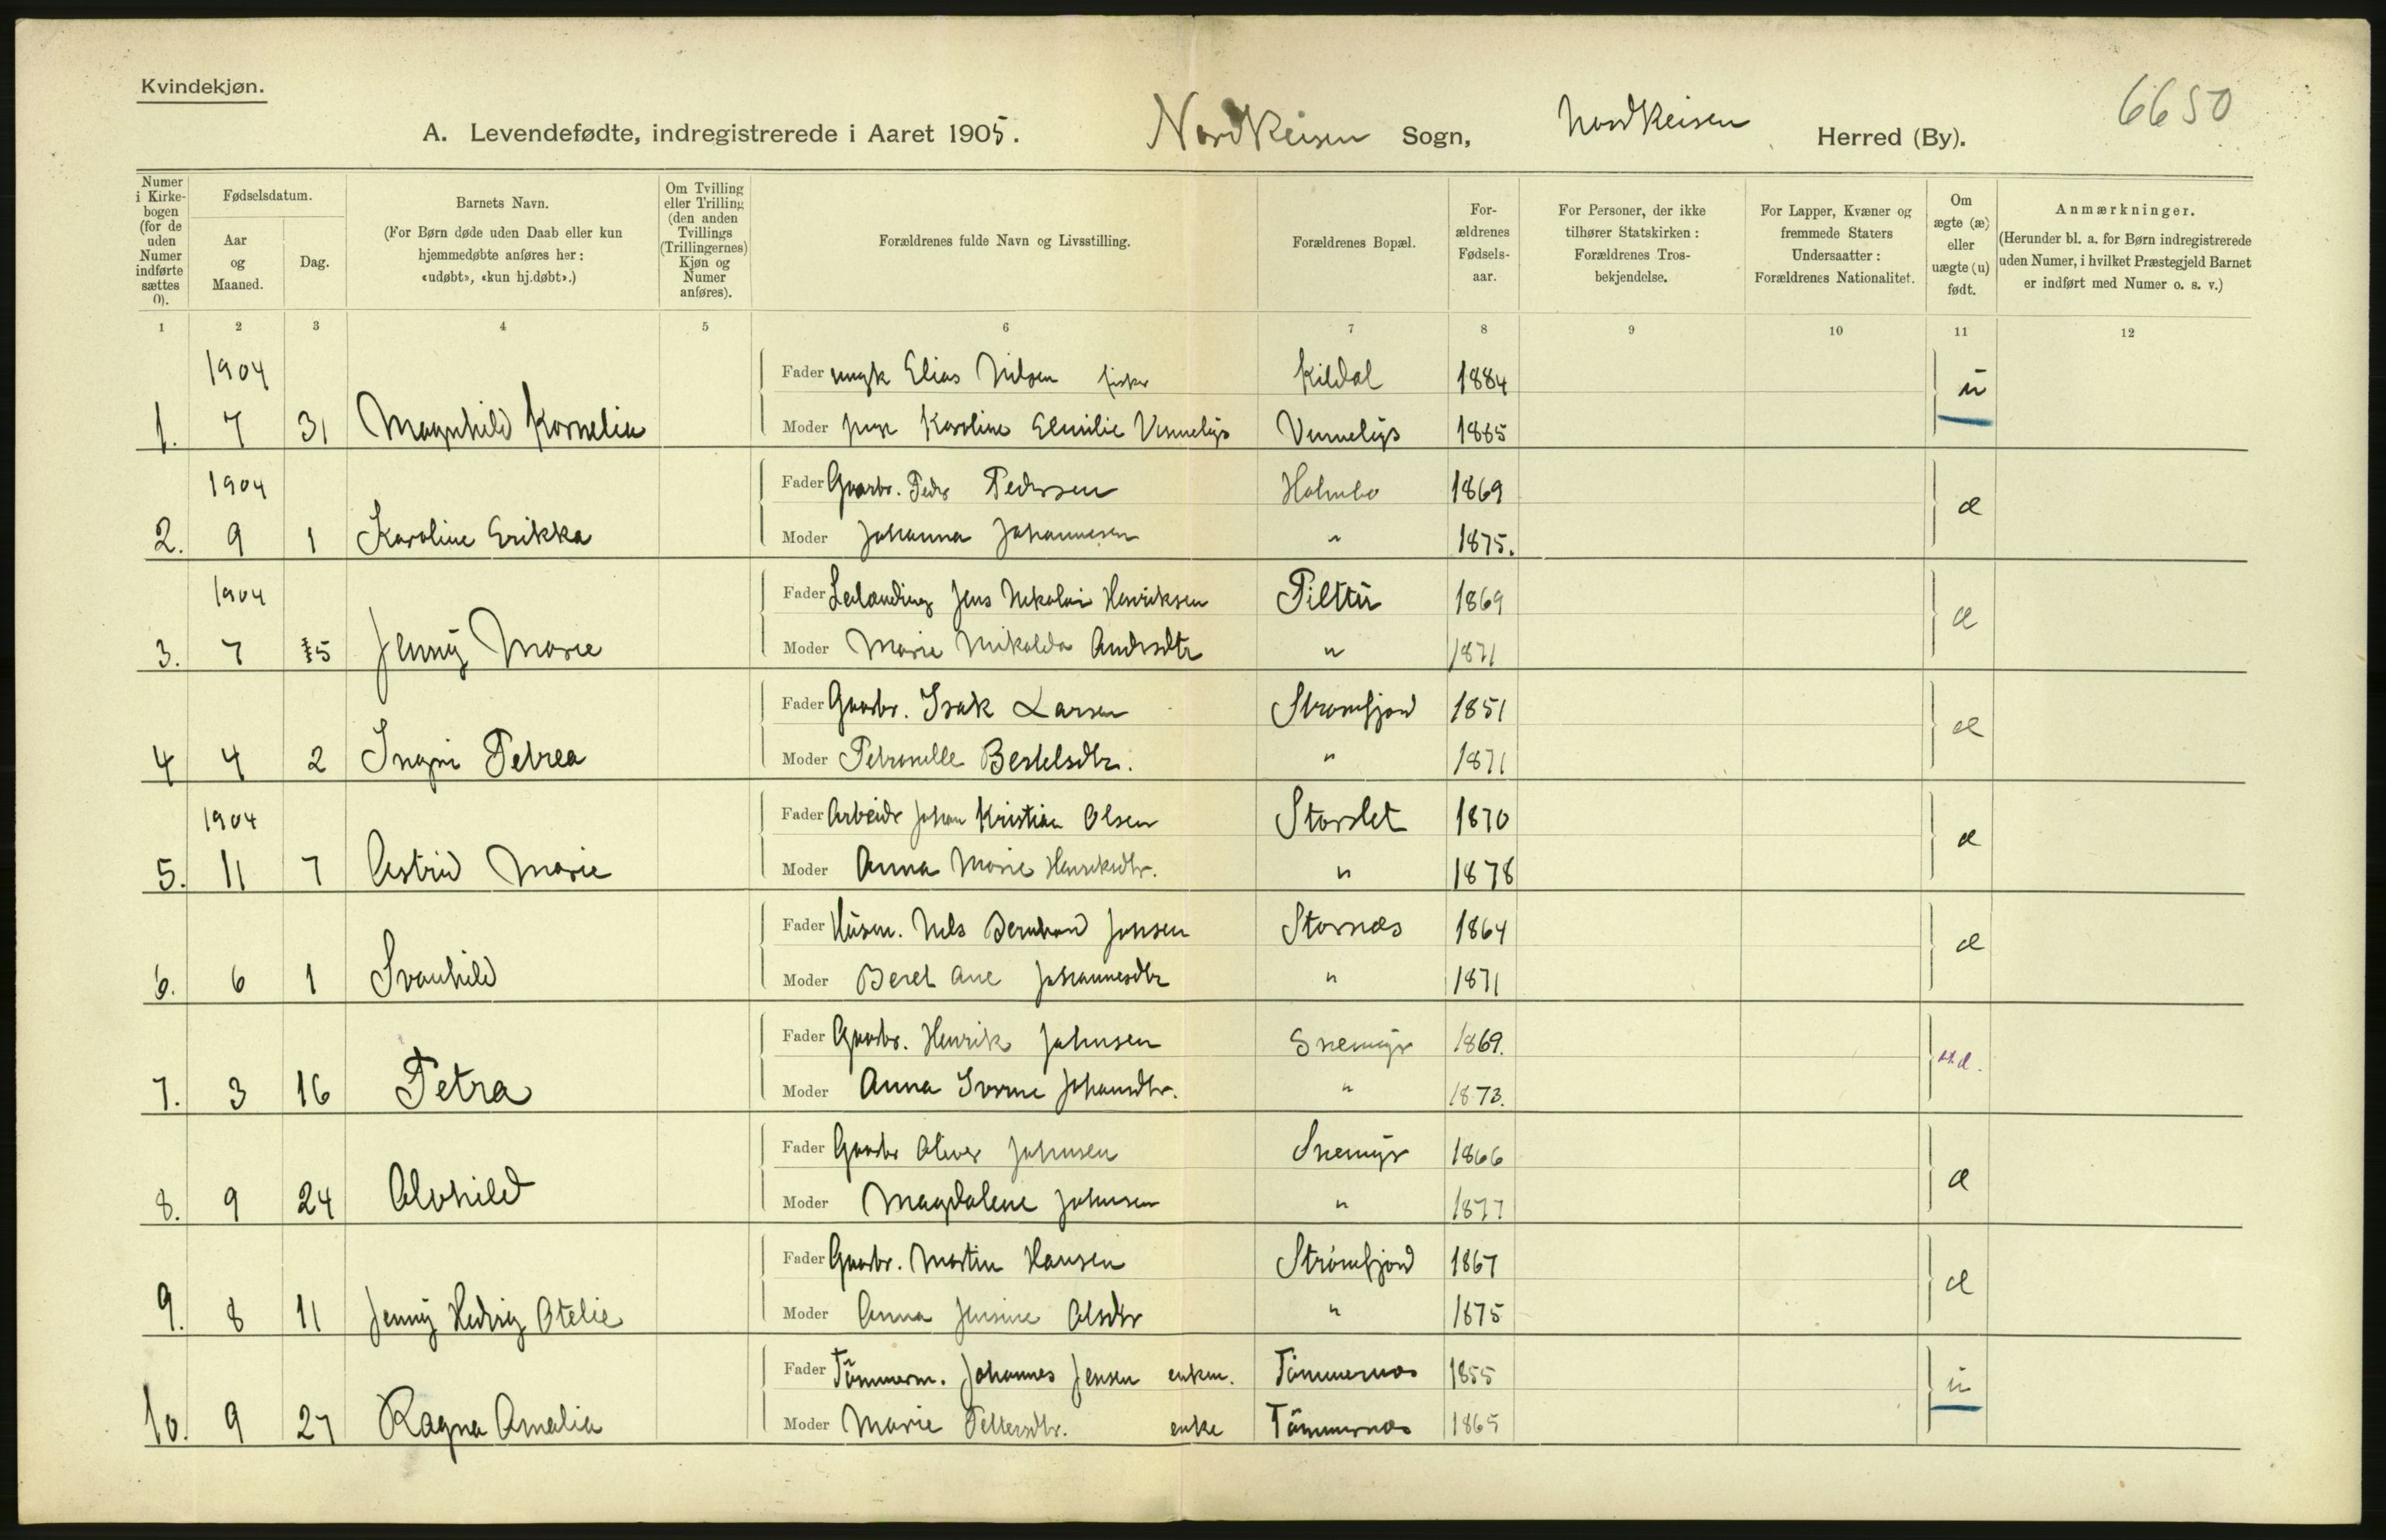 Kvindekjøn.
6650
A. Levendefødte, indregistrerede i Aaret 1905. Nordreisen Sogn, Nordreisen Herred (By).
Numer i Kirkebogen (for de uden Numer indførte sættes 0).
Fødselsdatum.
Aar og Maaned.
Dag.
Barnets Navn.
(For Børn døde uden Daab eller kun hjemmedøbte anføres her: «udøbt», «kun hj.døbt».)
Om Tvilling eller Trilling (den anden Tvillings (Trillingernes) Kjøn og Numer anføres).
Forældrenes fulde Navn og Livsstilling.
Forældrenes Bopæl.
Forældrenes Fødselsaar.
For Personer, der ikke tilhører Statskirken: Forældrenes Trosbekjendelse.
For Lapper, Kvæner og fremmede Staters Undersaatter: Forældrenes Nationalitet.
Om ægte (æ) eller uægte (u) født.
Anmærkninger.
(Herunder bl. a. for Børn indregistrerede uden Numer, i hvilket Præstegjeld Barnet er indført med Numer o. s. v.)
1 2 3 4 5 6 7 8 9 10 11 12
1904 Fader ungk Elias Nilsen fisker Kildal 1884 u
1. 7 31 Magnhild Kornelia Moder pige Karoline Emilie 1885
1904 Fader Gaarbr. Peder Pedersen Holmbo 1869 æ
2. 9 1 Karoline Erikka Moder Johanna Johannesen " 1875.
1904 Fader Leilænding Jens Nikolai Henriksen Piltti 1869 æ
3. 7 15 Jenny Marie Moder Marie Nikolda Andrsdtr " 1871
Fader Gaarbr. Isak Larsen Strømfjord 1851 æ
4 4 2 Ingri Petrea Moder Petronelle Bertelsdtr. " 1871
1904 Fader Arbeider Johan Kristian Olsen Storslet 1870 æ
5. 11 7 Astrid Marie Moder Anna Marie Henriksdtr. " 1878
Fader Husm. Nils Bernhard Jonsen Stornæs 1864 æ
6. 6 1 Svanhild Moder Beret Ane Johannesdtr " 1871
Fader Gaarbr. Henrik Johnsen Snemyr 1869.
7. 3 16 Petra Moder Anna Johansdtr. " 1873.
Fader Gaarbr Oliver Johnsen Snemyr 1866 æ
8. 9 24 Alvhild Moder Magdalene Johnsen " 1877
Fader Gaarbr. Martin Hansen Strømfjord 1867 æ
9. 8 11 Jenny Hedvig Otelie Moder Anna Jensine Olsdtr " 1875
Fader Tømmerm. Johannes Jensen enkem. Tømmernæs 1855 u
10. 9 27 Ragna Amalia Moder Marie Pettersdtr. enke Tømmernæs 1865